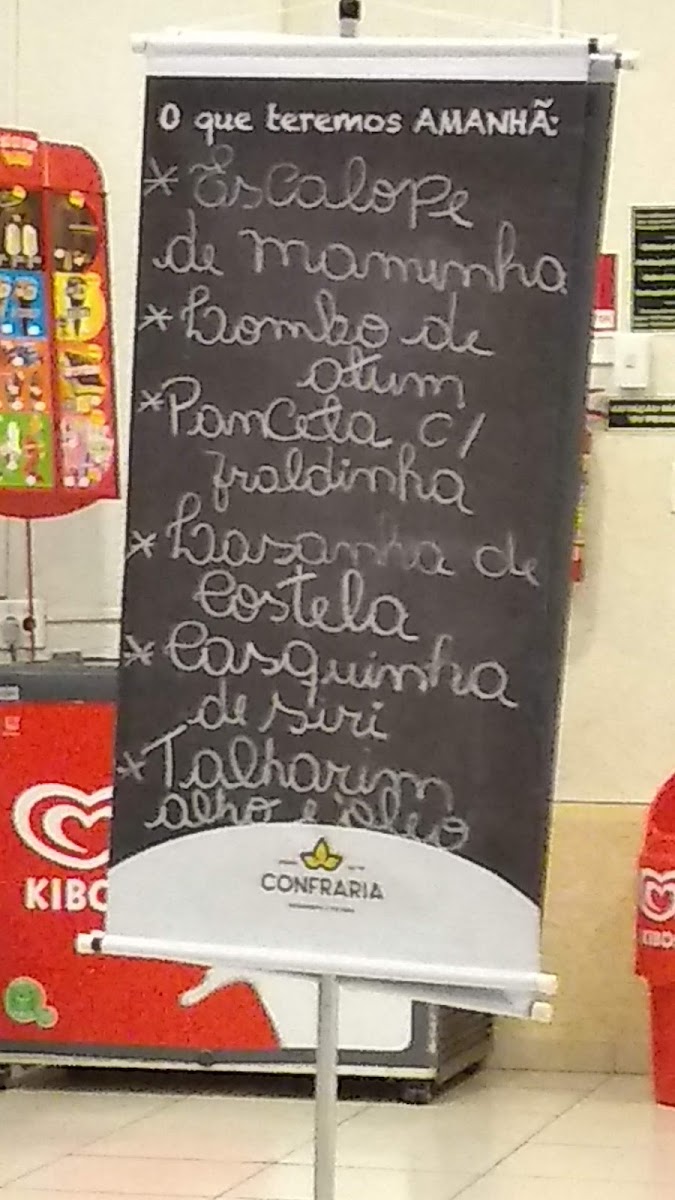 O que teremos AMANHÃ:
* Escalope
de maminha
* Lombo de
atum
* Panceta c/
fraldinha
* Lasanha de
Costela
* Casquinha
de siri
* Talharim
alho e óleo
CONFRARIA
KIBO
KIBO